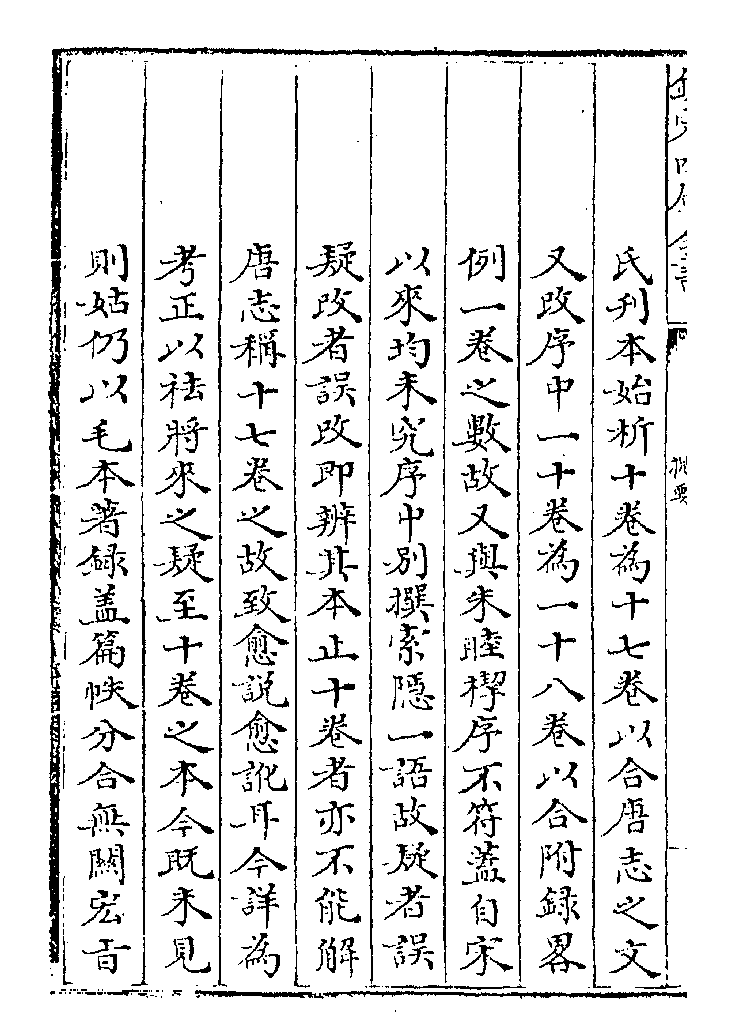 氏刊本始析十卷為十七卷以合唐志之文
又改序中一十卷為一十八卷以合附録畧
例一卷之數故又與朱睦㮮序不符蓋自宋
以來均未究序中别撰索隠一語故疑者誤
疑改者誤改即辨其本止十卷者亦不能解
唐志稱十七卷之故致愈説愈訛耳今詳為
考正以祛將來之疑至十卷之本今既未見
則姑仍以毛本著録盖篇帙分合無關宏旨
提要